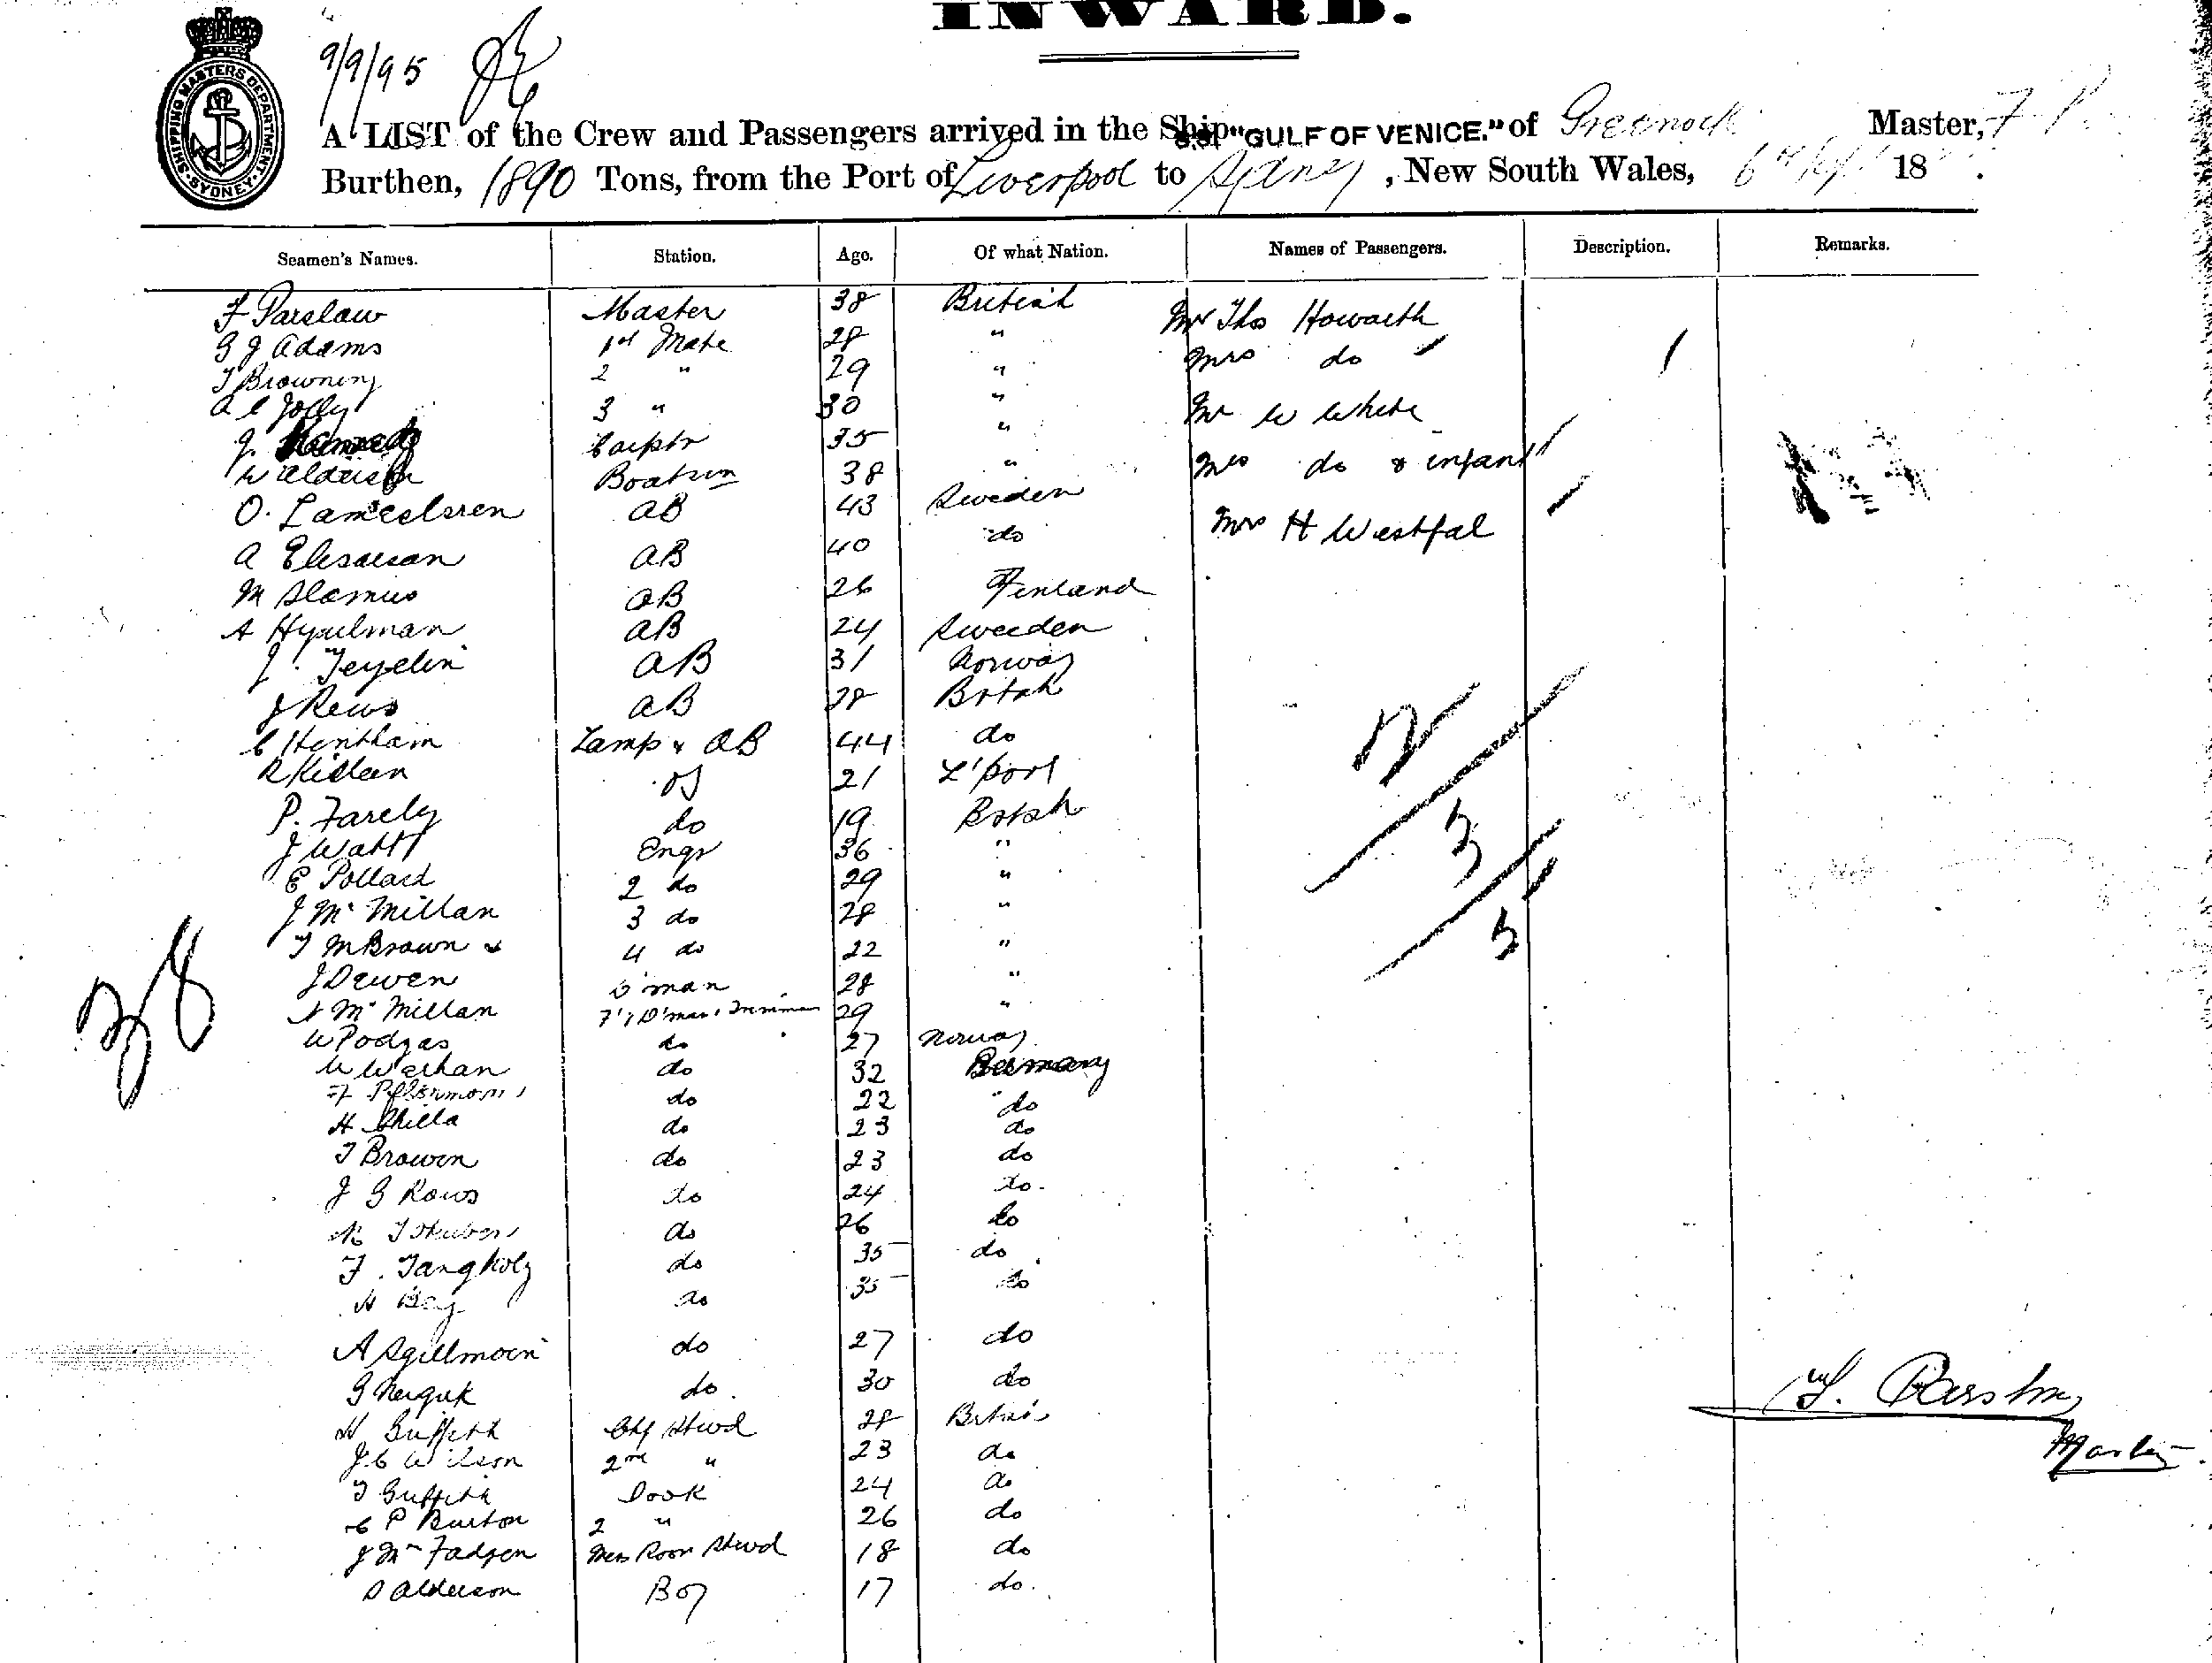 INWARD.
9/9/95
SHIPPING MASTERS DEPARTMENT. SYDNEY
A LIST of the Crew and Passengers arrived in the Ship S.S. "GULF OF VENICE." of Greenock Master, F. P.
Burthen, 1890 Tons, from the Port of Liverpool to Sydney, New South Wales, 6th Sept 18 .
Seamen's Names. Station. Age. Of what Nation. Names of Passengers. Description. Remarks.
F Parslow Master 38 British Mr Thos Howarth
G J Adams 1st Mate 28 " Mrs do
T Browning 2 " 29 "
A C Jolly 3 " 30 " Mr W White
J. Kennedy Carptr 35 "
W Boatsun 38 " Mrs do & infant
O. AB 43 Sweden Mrs H Westfal
A AB 40 do
M AB 26 Finland
A AB 24 Sweeden
J. AB 31 Norway
J Rews AB 28 Brtsh
C Hentham Lamp & AB 44 do
R Killeen OS 21 L'pool
P. Farely do 19 Brtsh
J Watt Engr 36 "
E Pollard 2 do 29 "
J McMillan 3 do 28 "
T M Brown 4 do 22 "
J Dewen D'man 28 "
A McMillan 29 "
W Podgas do 27 Norway
W Werhan do 32 Germany
F do 22 do
H do 23 do
T Brown do 23 do
J G Rows do 24 do.
do 26 do
F. do 35 do
H Bey do 35 do
A do 27 do
G do. 30 do
H Griffith Chf Stwd 28
J C Wilson 2nd " 23 do
T Griffith Cook 24 do
C P Burton 2 " 26 do
J McFadyen Mess Room Stwd 18 do
D Alderson Boy 17 do.
38
12
3
5
F. Parslow
Master